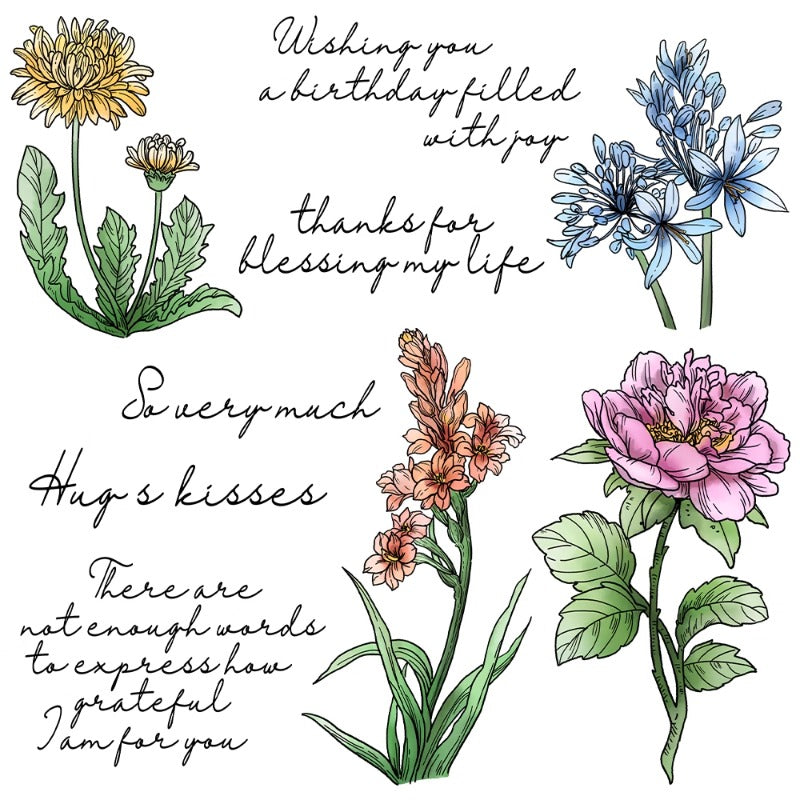 Wishing you
a birthday filled
with joy
thanks for
blessing my life
So very much
Hug s kisses
There are
not enough words
to express how
grateful
I am for you